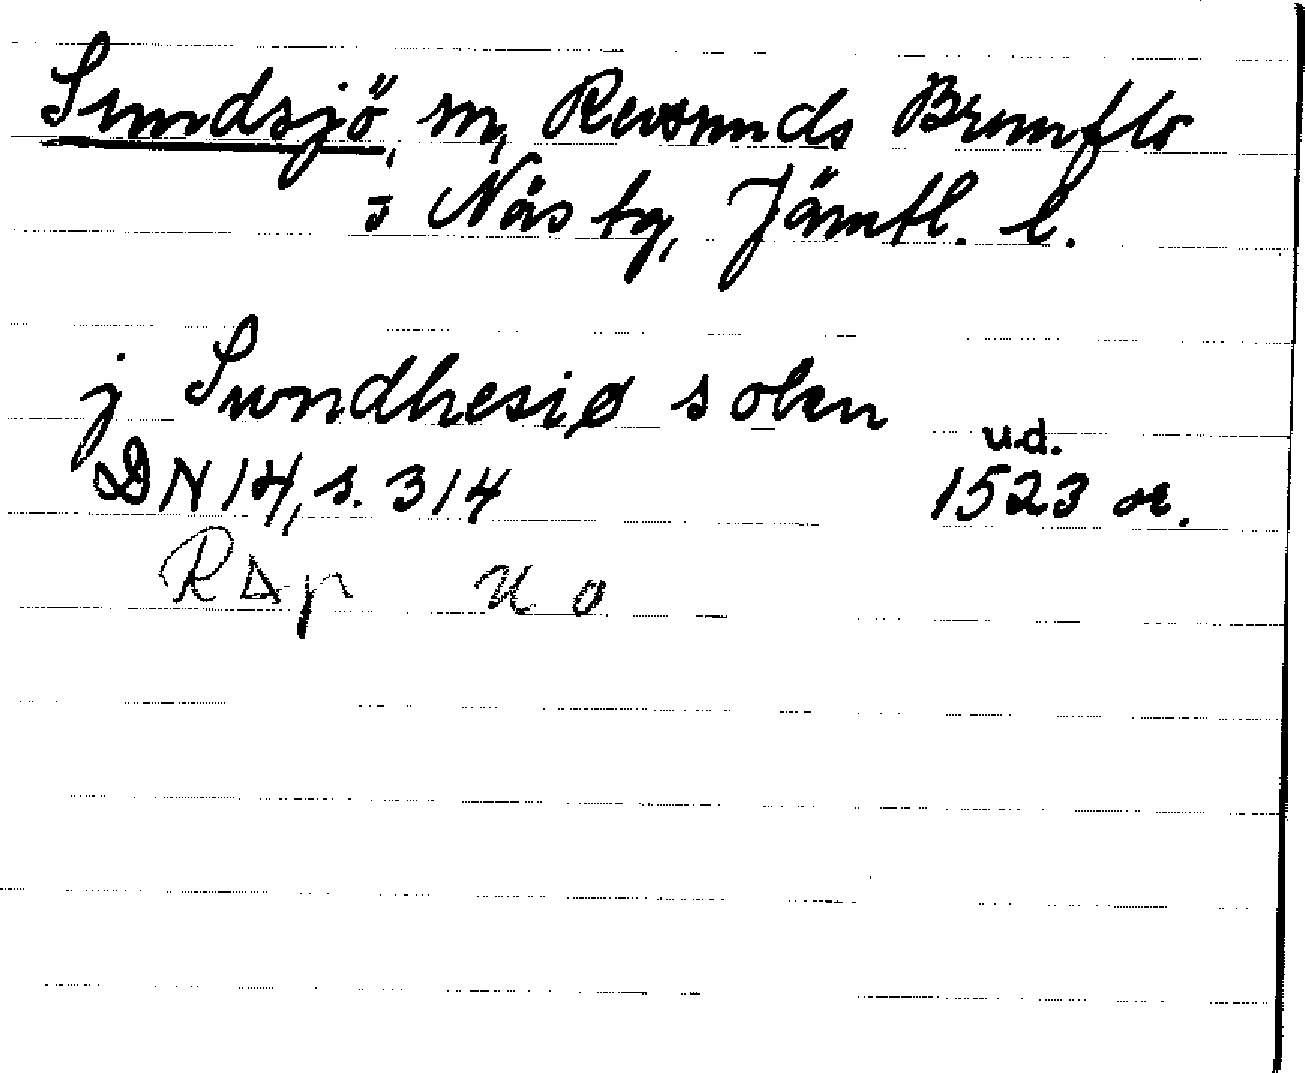 Sundsjö, sn, Revsunds Brunflo
o Näs tg, Jämtl. l.
j Swndhesiø soken
u.d.
DN 14, s. 314 1523 or.
RAp no